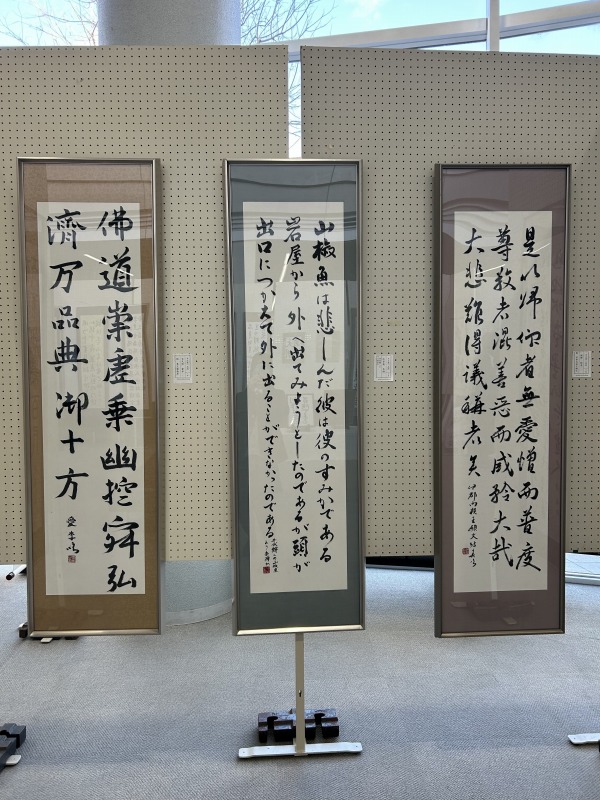 是以歸依者無愛憎而普度
尊敬者混善惡而咸矜大哉
大悲難得議稱者矣
伊都内親王願文
山椒魚は悲しんだ彼は彼のすみかである
岩屋から外へ出てみようとしたのであるが頭が
出口につかえて外に出ることができなかったのである
佛道崇虚乗幽控寂弘
濟万品典御十方